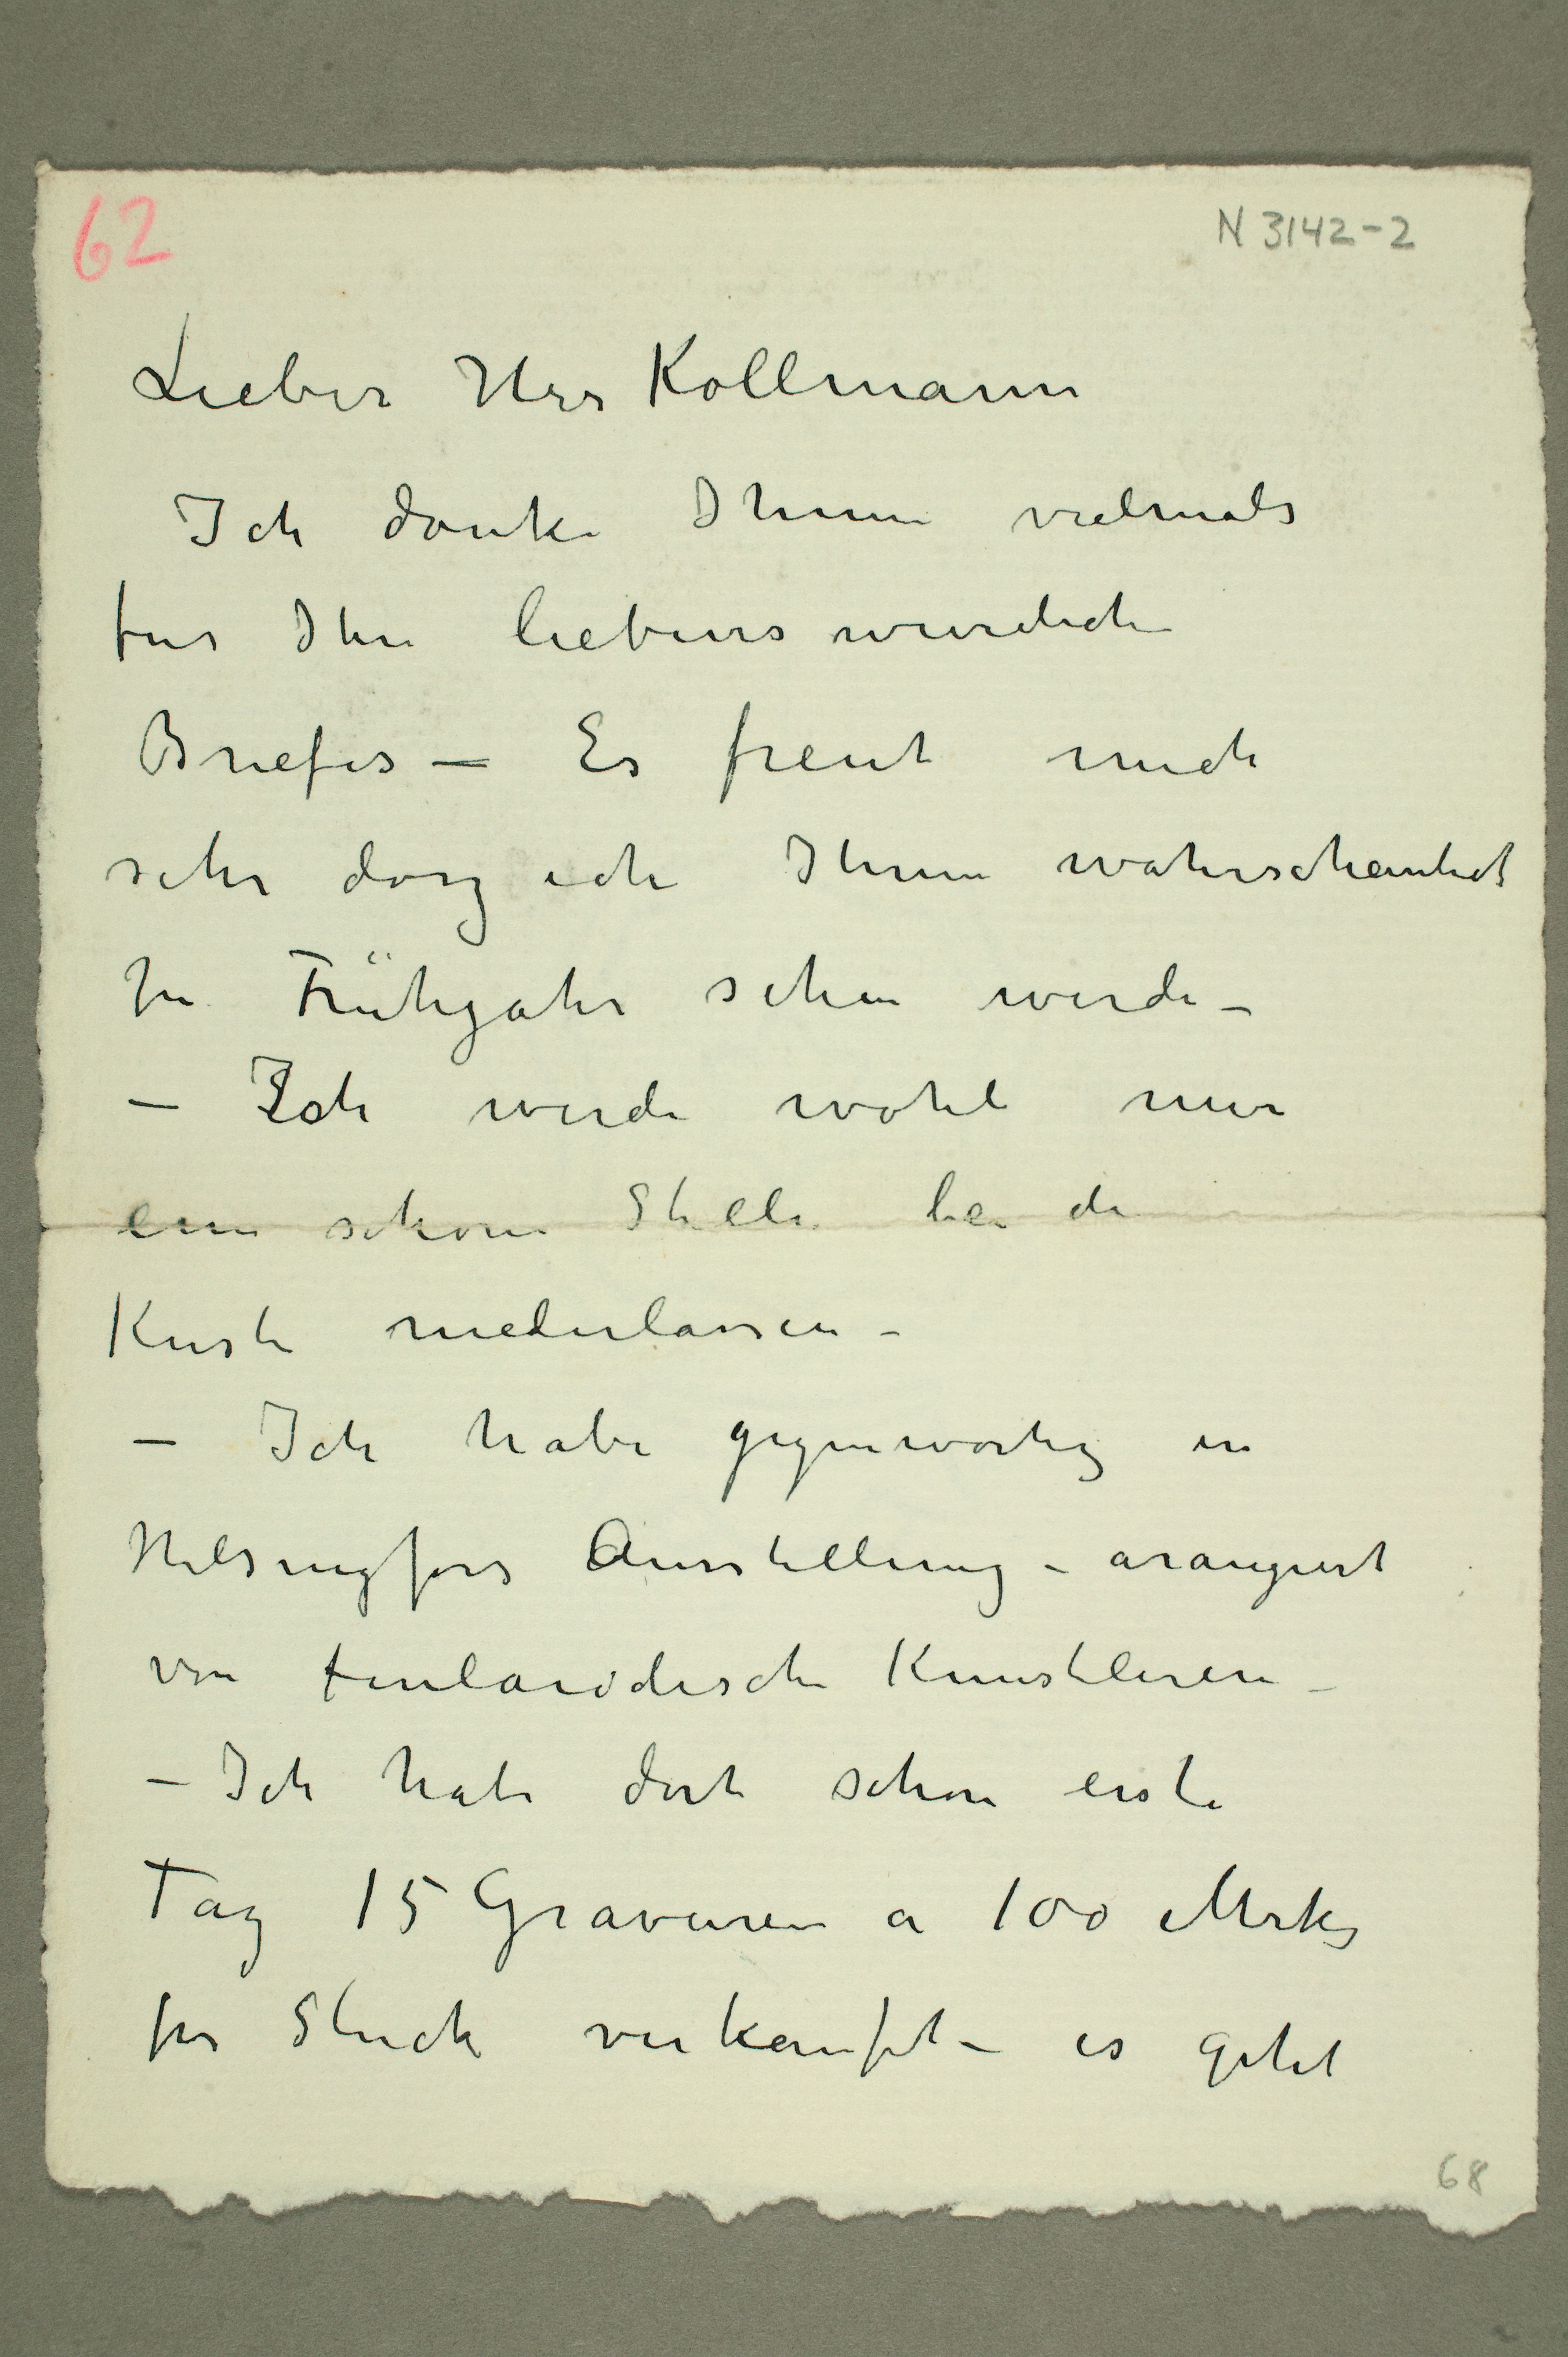 62
N 3142-2
Lieber Herr Kollmann
Ich danke Ihnen vielmals
fur Ihre liebenswurdiche
Briefes — Es freut mich
sehr dasz ich Ihnen wahrscheinlich
Fruhjahr sehen werde –
– Ich werde wohl
eine schöne Stelle bei de
Kuste niederlassen –
– Ich habe gegenwartig in
Helsingfors Ausstellung – arangiert
von finlandische Kunstleren –
– Ich habe dort schon erste
Tag 15 Gravuren a 100 Mrk
per Stuck verkauft – es geht
68